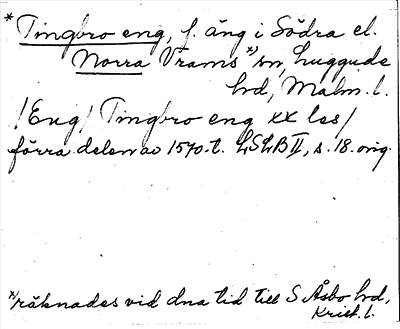 * Tingbro eng, f. äng i Södra el.
Norra Vrams x) sn, Luggude
hd, Malm. l.
/Eng/ Tingbro eng xx les/
förra delen av 1570-t. LSLB II, s. 18. orig.
x) räknades vid dna tid till S Åsbo hd,
Krist. l.